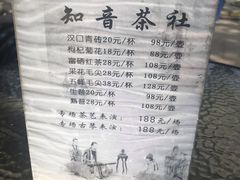 知音茶社
汉口青砖20元/杯 98元/壶
枸杞菊花18元/杯 88元/壶
富硒红茶28元/杯 108元/壶
采花毛尖28元/杯 108元/壶
五峰毛尖38元/杯 128元/壶
生普20元/杯 98元/壶
熟普28元/杯 108元/壶
专场茶艺表演: 188元/场
专场古琴表演: 188元/场